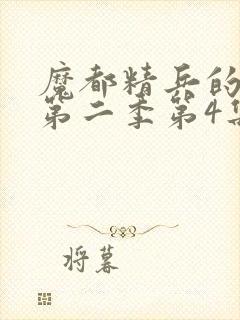 魔都精兵的
第二季第4集
将暮